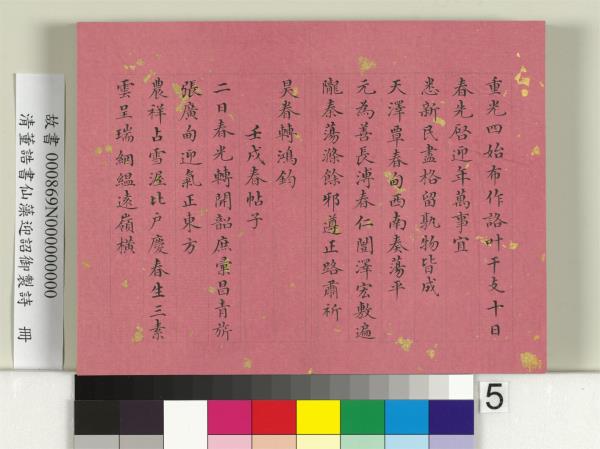 重光四始布作詻叶干支十日
春先啓迎年萬事宜
悉新民盡格留孰物皆成
天澤覃春甸西南奏蕩平
元為善長溥春仁闓澤宏敷遍
隴秦蕩滌餘邪遵正路肅祈
昊眷轉鴻鈞
壬戌春帖子
二日春光轉開韶庶彙昌青旂
張廣甸迎氣正東方
農祥占雪渥比戶慶春生三素
雲呈瑞絪縕遠嶺橫
故書 000869N000000000
清董誥書仙藻迎韶御製詩 冊
5